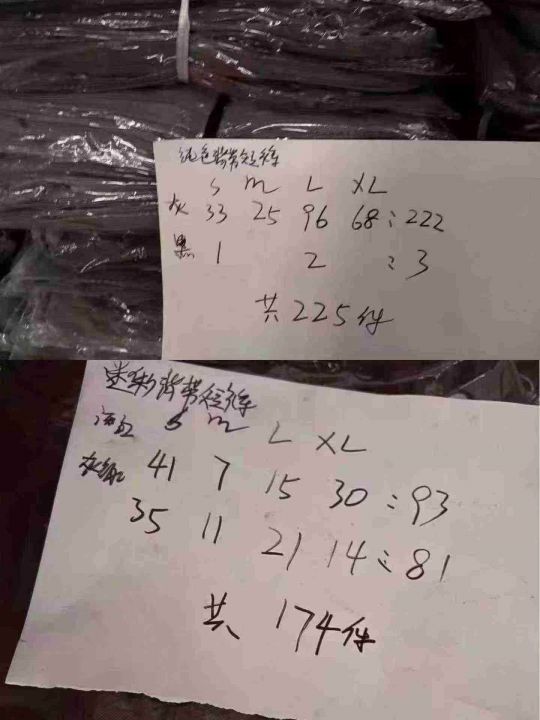 纯色背带短裤
S m L XL
灰 33 25 96 68:222
黑 1 2 :3
共225件
迷彩背带短裤
S m L XL
41 7 15 30:93
35 11 21 14:81
共174件